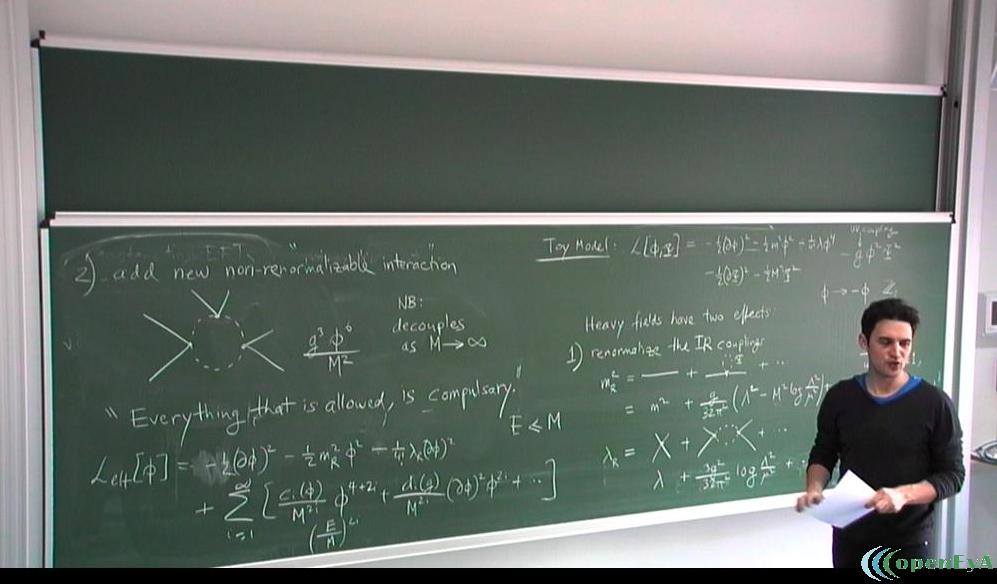 2) add new non-renormalizable interaction
g³ φ⁶ / M²
NB:
decouples
as M → ∞
"Everything that is allowed, is compulsary."
E ≤ M
L_eff[φ] = -½(∂φ)² - ½ m_R² φ² - 1/4! λ_R (∂φ)²
+ Σ_{i=1}^∞ [ c_i(g)/M^{2i} φ^{4+2i} + d_i(g)/M^{2i} (∂φ)² φ^{2i} + ... ]
(E/M)^{2i}
Toy Model: L[φ,Ψ] = -½(∂φ)² - ½m²φ² - 1/4! λφ⁴ - g φ² Ψ²
UV coupling
-½(∂Ψ)² - ½M²Ψ²
φ → -φ
Heavy fields have two effects:
1) renormalize the IR couplings
m_R² = + + ...
= m² + g/32π² (Λ² - M² log Λ²/μ²)
λ_R = + + ...
λ + 3g²/32π² log Λ²/μ² +
openEyA